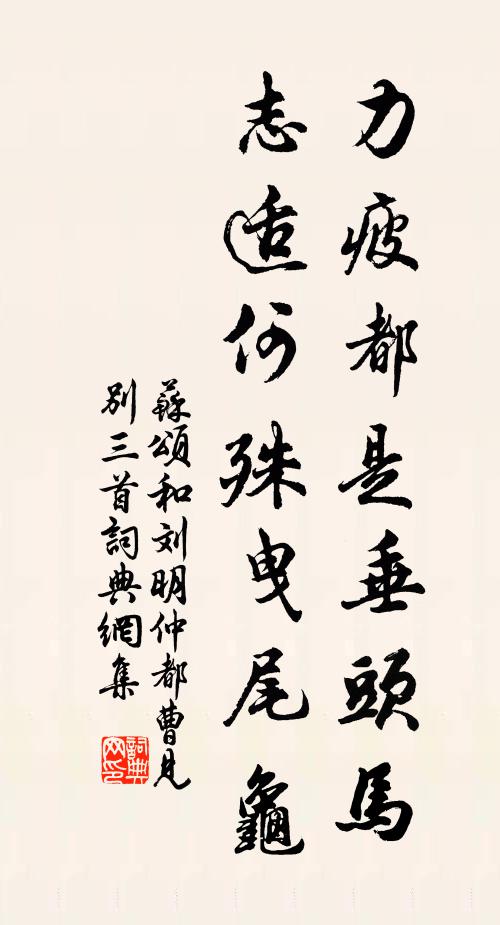 力疲都是垂頭馬
志适何殊曳尾龜
蘇頌和刘明仲都曹見
別三首詞典網集
詞典网印